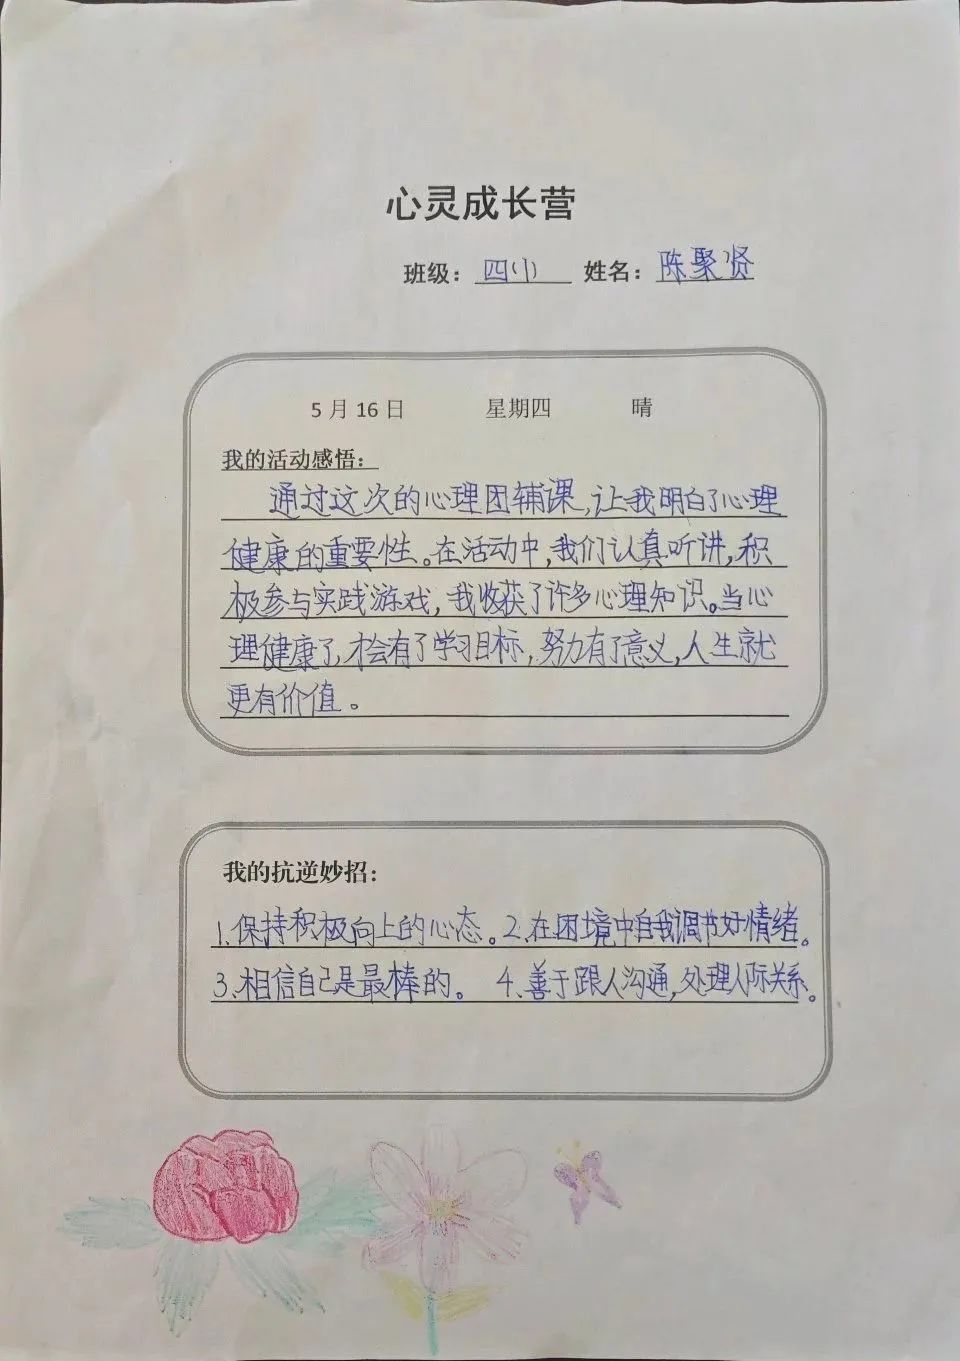 心灵成长营
班级：四(1) 姓名：陈聚贤
5月16日 星期四 晴
我的活动感悟：
通过这次的心理团辅课,让我明白了心理
健康的重要性。在活动中,我们认真听讲,积
极参与实践游戏,我收获了许多心理知识。当心
理健康了,才会有了学习目标,努力有了意义,人生就
更有价值。
我的抗逆妙招：
1.保持积极向上的心态。2.在困境中自我调节好情绪。
3、相信自己是最棒的。 4、善于跟人沟通,处理人际关系。